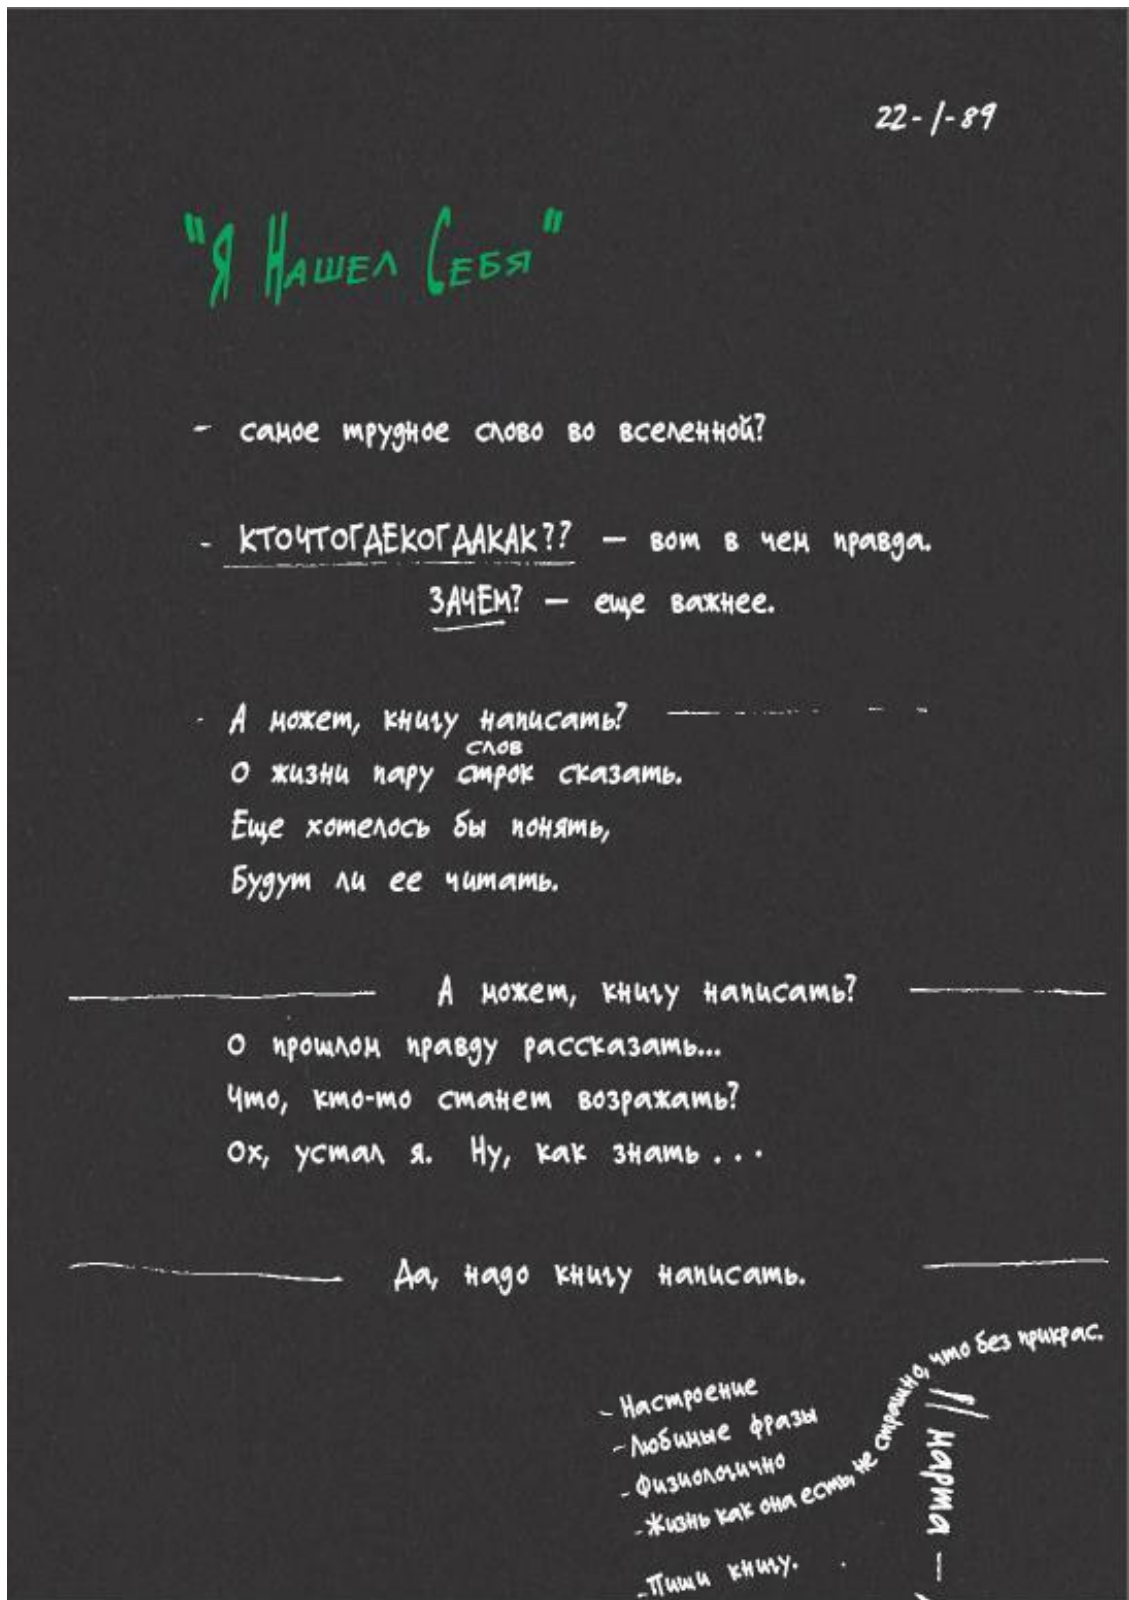 22-1-89
"Я Нашел Себя"
- самое трудное слово во вселенной?
- КТОЧТОГДЕКОГДАКАК?? — вот в чем правда.
ЗАЧЕМ? — еще важнее.
- А может, книгу написать?
слов
О жизни пару строк сказать.
Еще хотелось бы понять,
Будут ли ее читать.
А может, книгу написать?
О прошлом правду рассказать...
Что, кто-то станет возражать?
Ох, устал я. Ну, как знать ...
Да, надо книгу написать.
- Настроение
- Любимые фразы
- Физиологично
- Жизнь как она есть, не страшно, что без прикрас.
- Пиши книгу.
11 марта —